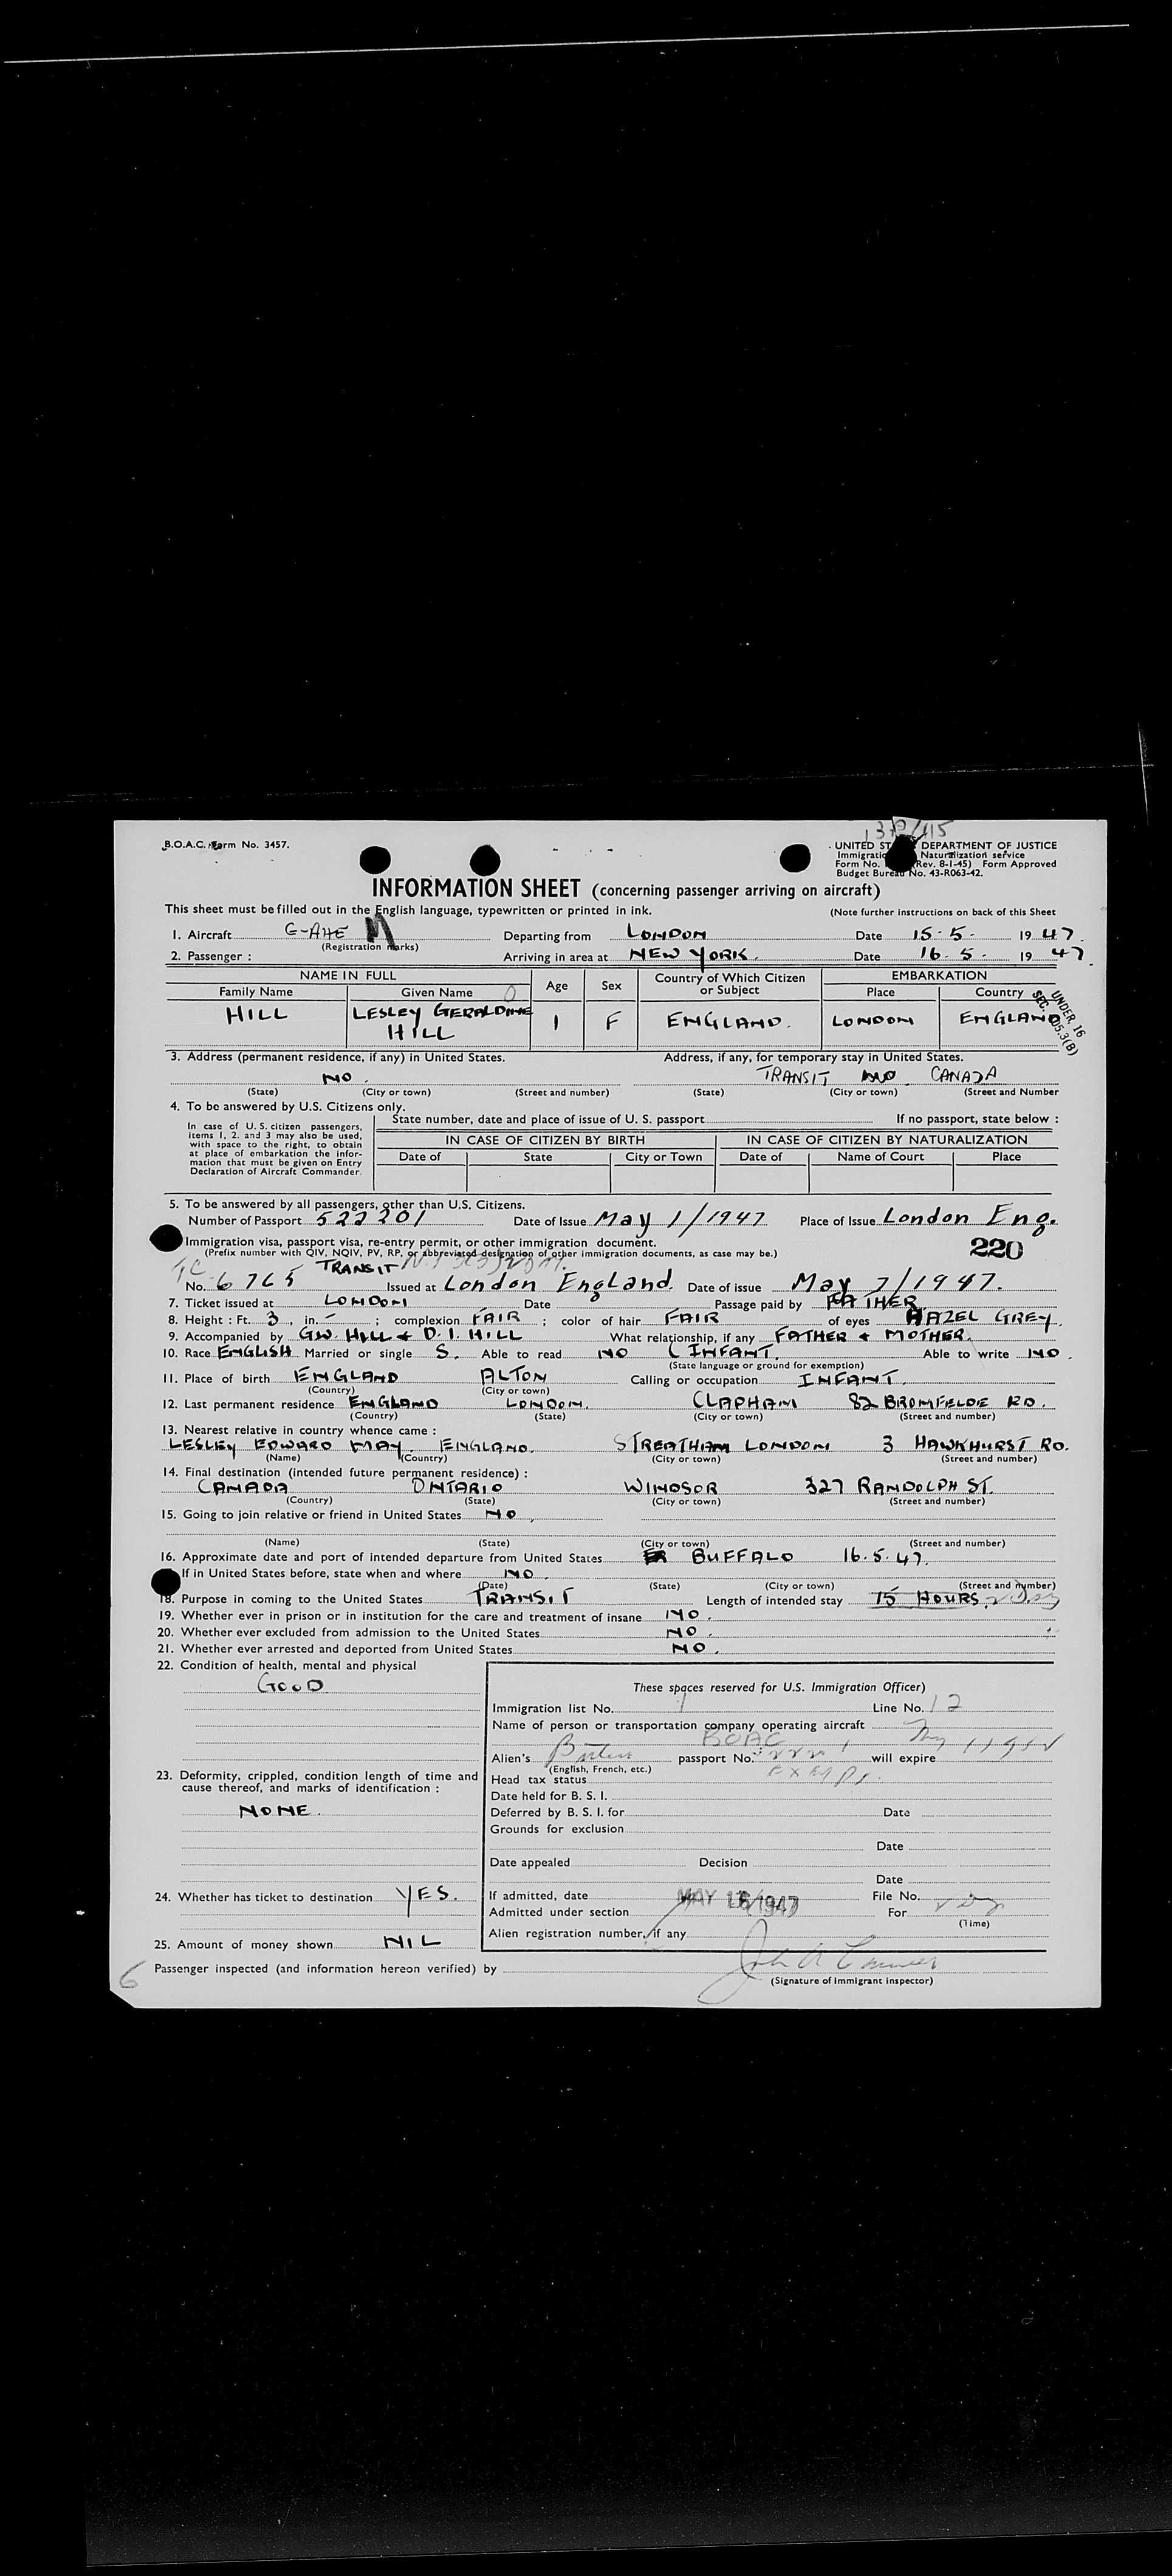 1370/115
B.O.A.C. Form No. 3457.
UNITED ST DEPARTMENT OF JUSTICE
Immigratio Naturalization service
Form No. (Rev. 8-1-45) Form Approved
Budget Bureau No. 43-R063-42.
INFORMATION SHEET (concerning passenger arriving on aircraft)
This sheet must be filled out in the English language, typewritten or printed in ink. (Note further instructions on back of this Sheet
1. Aircraft G-AHE M Departing from LONDON Date 15·5· 19 47.
(Registration marks)
2. Passenger : Arriving in area at NEW YORK. Date 16.5. 19 47.
NAME IN FULL Age Sex Country of Which Citizen or Subject EMBARKATION
Family Name Given Name Place Country
HILL LESLEY GERALDINE HILL 1 F ENGLAND. LONDON ENGLAND
UNDER 16
SEC. 105.3(B)
3. Address (permanent residence, if any) in United States. Address, if any, for temporary stay in United States.
NO. TRANSIT CANADA
(State) (City or town) (Street and number) (State) (City or town) (Street and Number
4. To be answered by U.S. Citizens only.
In case of U.S. citizen passengers, items 1, 2, and 3 may also be used, with space to the right, to obtain at place of embarkation the information that must be given on Entry Declaration of Aircraft Commander.
State number, date and place of issue of U. S. passport If no passport, state below :
IN CASE OF CITIZEN BY BIRTH IN CASE OF CITIZEN BY NATURALIZATION
Date of State City or Town Date of Name of Court Place
5. To be answered by all passengers, other than U.S. Citizens.
Number of Passport 522201 Date of Issue May 1/1947 Place of Issue London Eng.
Immigration visa, passport visa, re-entry permit, or other immigration document. 220
(Prefix number with QIV, NQIV, PV, RP, or abbreviated designation of other immigration documents, as case may be.)
TC TRANSIT
No. 6765 Issued at London England. Date of issue May 7/1947.
7. Ticket issued at LONDON Date Passage paid by FATHER
8. Height : Ft. 3, in. - ; complexion FAIR ; color of hair FAIR of eyes HAZEL GREY.
9. Accompanied by G.W. HILL + D. I. HILL What relationship, if any FATHER + MOTHER.
10. Race ENGLISH Married or single S. Able to read NO (INFANT. Able to write NO.
(State language or ground for exemption)
11. Place of birth ENGLAND ALTON Calling or occupation INFANT.
(Country) (City or town)
12. Last permanent residence ENGLAND LONDON. CLAPHAM 82 BROMFELDE RD.
(Country) (State) (City or town) (Street and number)
13. Nearest relative in country whence came :
LESLEY EDWARD MAY. ENGLAND. STREATHAM LONDON 3 HAWKHURST RD.
(Name) (Country) (City or town) (Street and number)
14. Final destination (intended future permanent residence) :
CANADA ONTARIO WINDSOR 327 RANDOLPH ST.
(Country) (State) (City or town) (Street and number)
15. Going to join relative or friend in United States NO.
(Name) (State) (City or town) (Street and number)
16. Approximate date and port of intended departure from United States BUFFALO 16.5.47.
If in United States before, state when and where NO.
(Date) (State) (City or town) (Street and number)
18. Purpose in coming to the United States TRANSIT Length of intended stay 15 HOURS.
19. Whether ever in prison or in institution for the care and treatment of insane NO.
20. Whether ever excluded from admission to the United States NO.
21. Whether ever arrested and deported from United States NO.
22. Condition of health, mental and physical
GOOD
These spaces reserved for U.S. Immigration Officer)
Immigration list No. 1 Line No. 12
Name of person or transportation company operating aircraft
BOAC
Alien's passport No. will expire
(English, French, etc.)
23. Deformity, crippled, condition length of time and cause thereof, and marks of identification :
NONE.
Head tax status Exempt.
Date held for B. S. I.
Deferred by B. S. I. for Date
Grounds for exclusion
Date
Date appealed Decision
Date
24. Whether has ticket to destination YES.
If admitted, date MAY 16 1947 File No.
Admitted under section For
(Time)
Alien registration number, if any
25. Amount of money shown NIL
6 Passenger inspected (and information hereon verified) by
(Signature of Immigrant inspector)